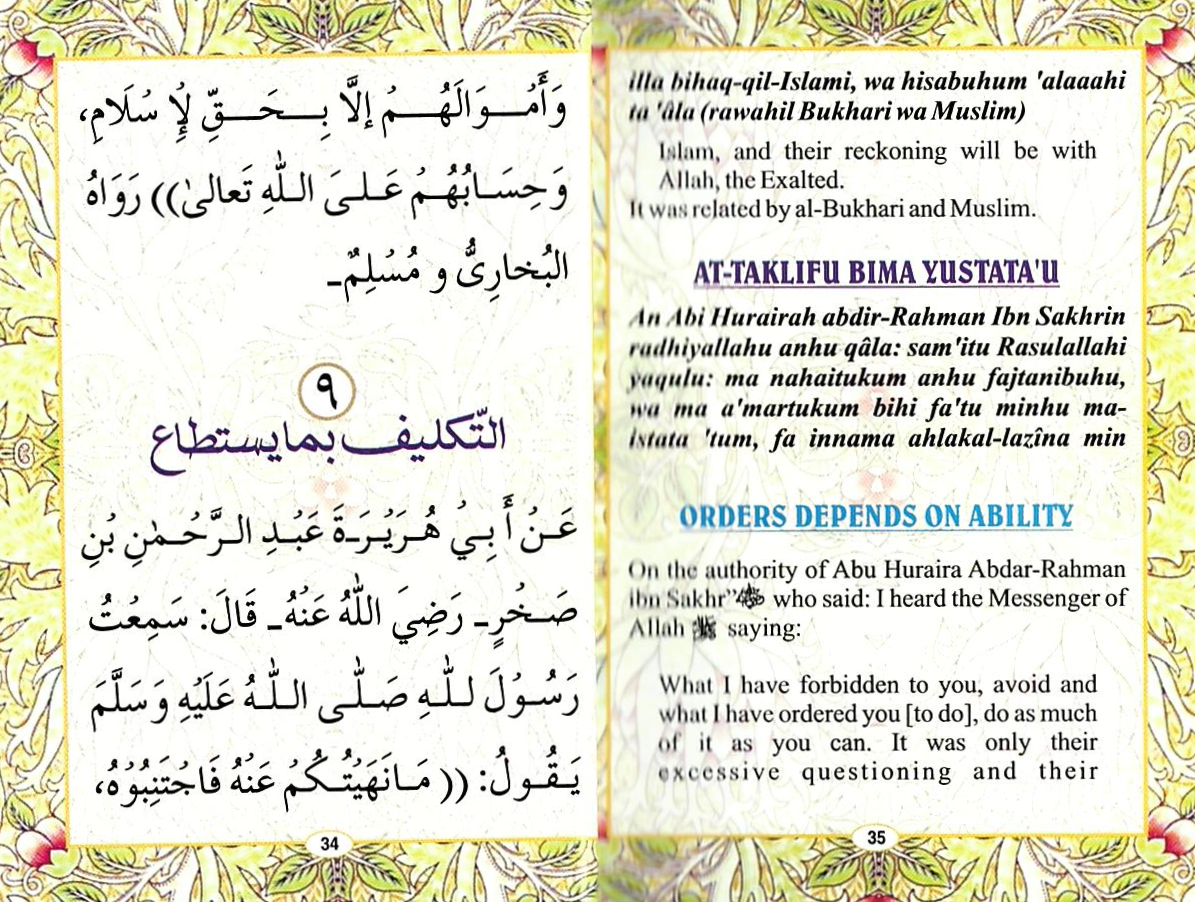 وَأَمُوَالَهُمُ إلَّا بِحَقِّ لِإُ سُلَامِ،
وَحِسَابُهُمُ عَلىَ اللّٰهِ تَعالىٰ)) رَوَاهُ
البُخارِىُّ و مُسُلِمٌ۔
۹
التّكليف بما يستطاع
عَنُ أَ بِيُ هُرَيُرَةَ عَبُدِ الرَّحُمٰنِ بُنِ
صَخُرٍ۔ رَضِيَ اللّٰهُ عَنُهُ۔ قَالَ: سَمِعُتُ
رَسُوُلَ للّٰهِ صَلّٰى اللّٰهُ عَلَيُهِ وَسَلَّمَ
يَقُولُ: (( مَانَهَيُتُكُمُ عَنُهُ فَاجُتَنِبُوُهُ،
34
illa bihaq-qil-Islami, wa hisabuhum 'alaaahi
ta 'âla (rawahil Bukhari wa Muslim)
Islam, and their reckoning will be with
Allah, the Exalted.
It was related by al-Bukhari and Muslim.
AT-TAKLIFU BIMA YUSTATA'U
An Abi Hurairah abdir-Rahman Ibn Sakhrin
radhiyallahu anhu qâla: sam'itu Rasulallahi
yaqulu: ma nahaitukum anhu fajtanibuhu,
wa ma a'martukum bihi fa'tu minhu ma-
istata 'tum, fa innama ahlakal-lazîna min
ORDERS DEPENDS ON ABILITY
On the authority of Abu Huraira Abdar-Rahman
ibn Sakhr” who said: I heard the Messenger of
Allah ﷺ saying:
What I have forbidden to you, avoid and
what I have ordered you [to do], do as much
of it as you can. It was only their
excessive questioning and their
35